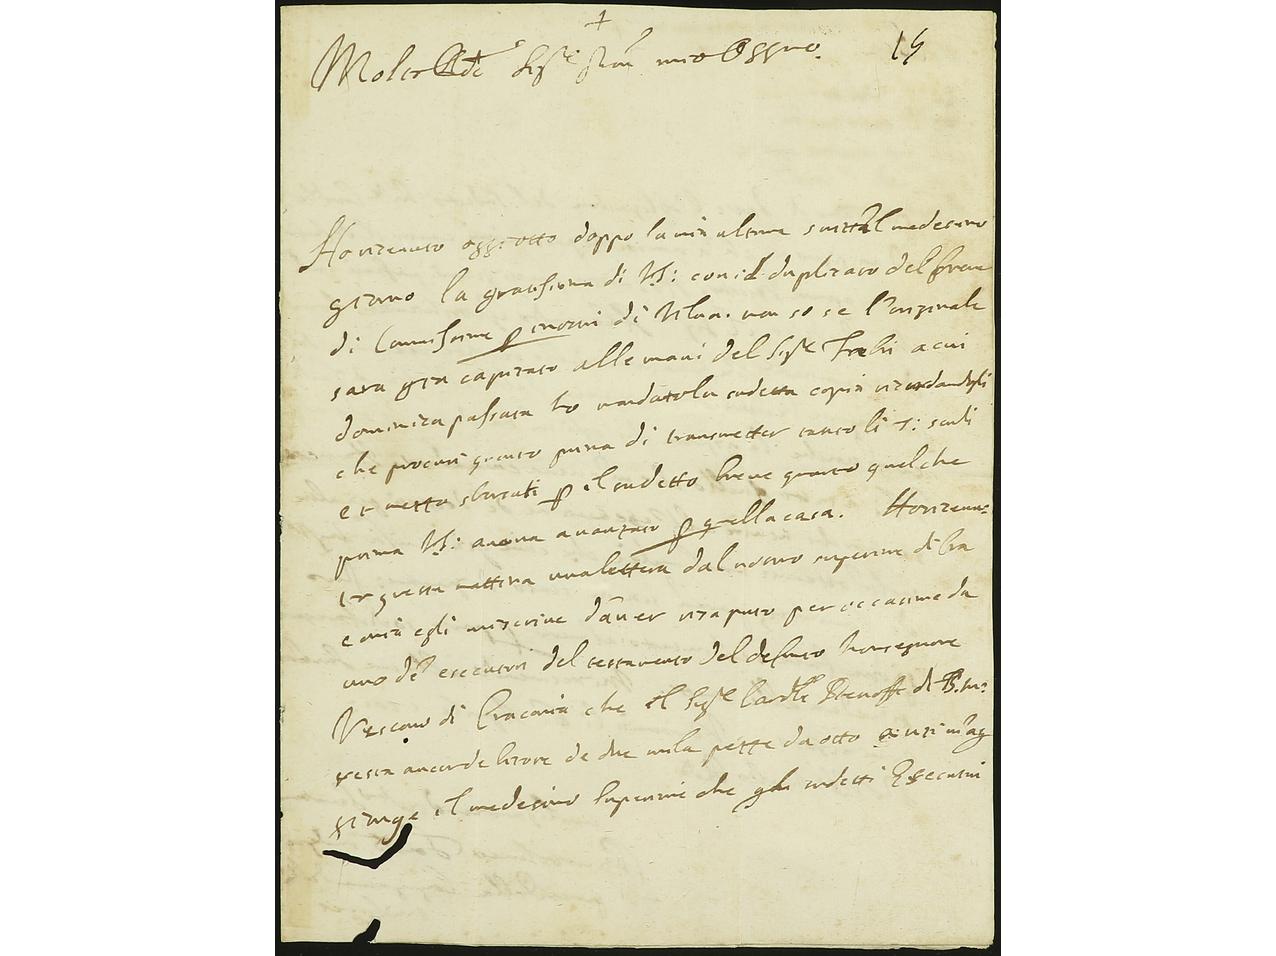 †
Molto Rde Sigre Sigre mio Ossmo. 15
Ho ricevuto oggi otto doppo la mia ultima scritta il medesimo
giorno la gratissima di VS: con il duplicato del breve
di Commissione per  di Vilna. non so se l'originale
sara gia capitato alle mani del Sigre  a cui
dominica passata ho mandato la sudetta copia ricordandogli
che procuri quanto prima di transmetter tanto li 7: scudi
et mezzo sborsati per il sudetto breve quanto quel che
prima VS: aveva avanzato per quella casa. Ho ricevu=
to questa mattina una lettera dal nostro superiore di Cra
covia egli mi scrive d'aver risaputo per occasione da
uno de esecutori del testamento del defunto Monsignore
Vescovo di Cracovia che il Sigre Cardle di B.m:
resta ancor debitore de due mila pezze da otto anzi m'ag
giunge il medesimo superiore che gli sudetti Esecutori